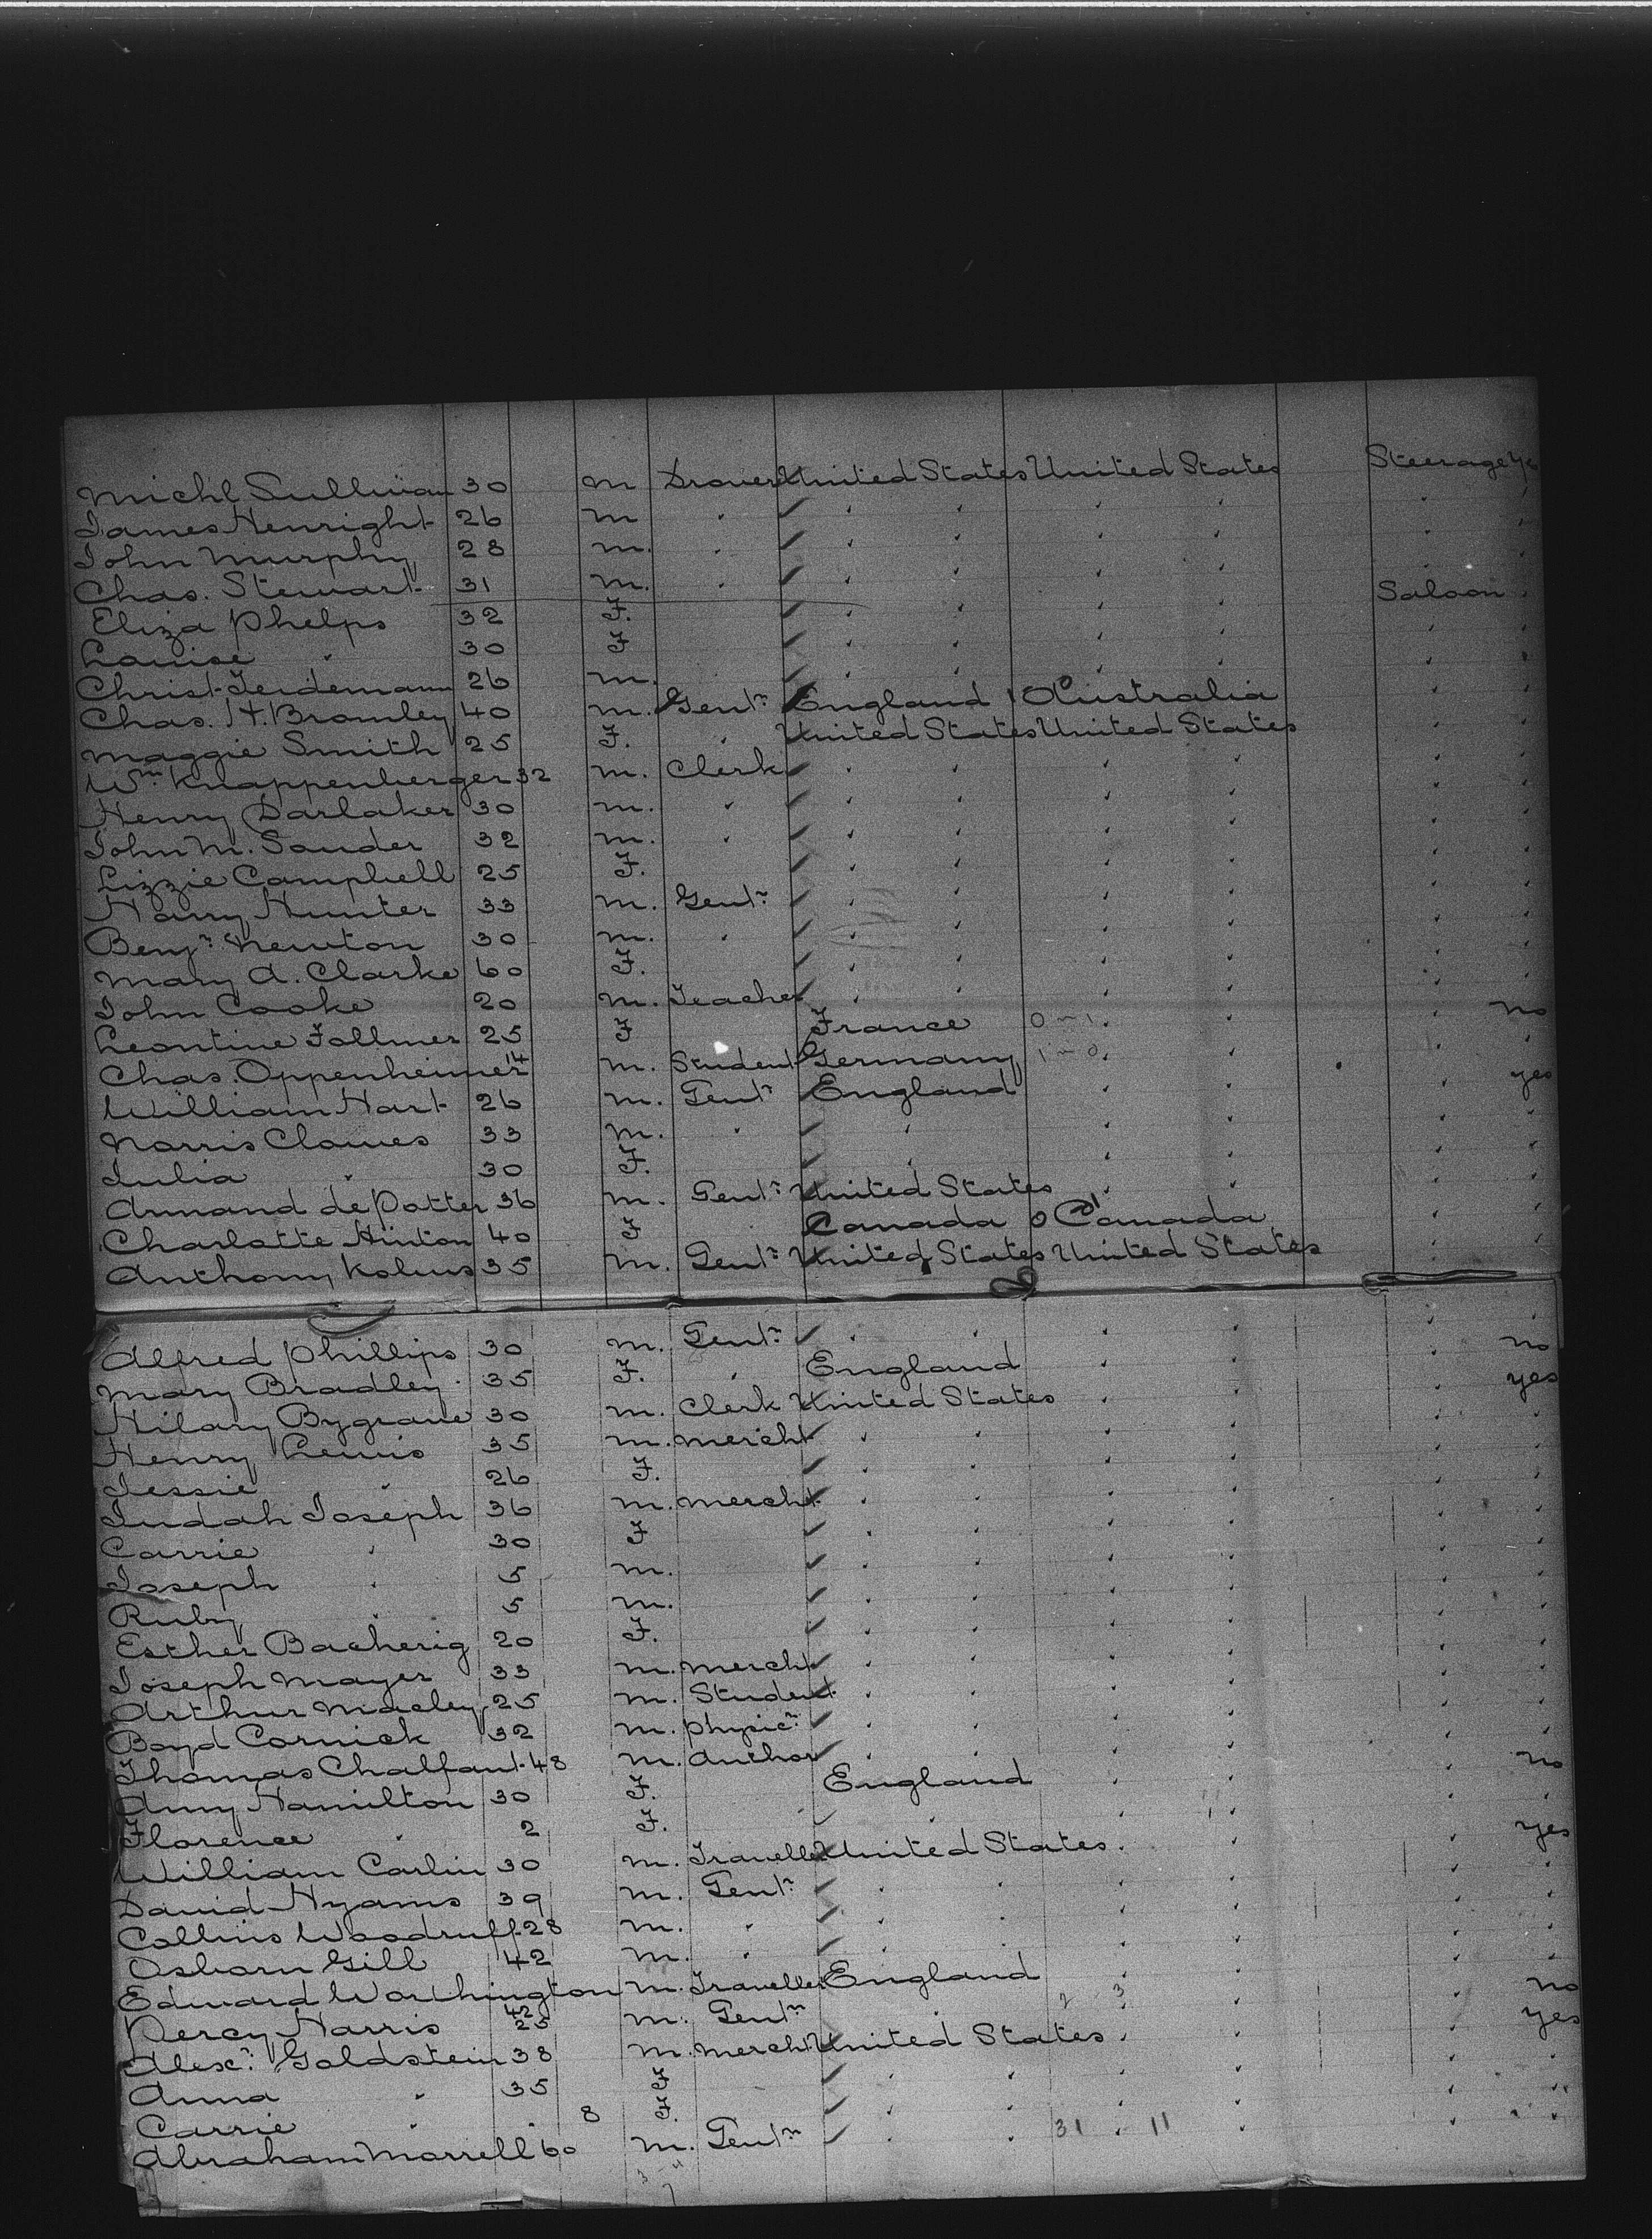 Michl Sullivan 30 m Drover United States United States Steerage Yes
James Henright 26 m " " " " " " "
John Murphy 28 m. " " " " " " "
Chas. Stewart 31 m. " " " " " " "
Eliza Phelps 32 F. " " " " Saloon "
Louise " 30 F " " " " " "
Christ. Teidemann 26 m. " " " " " "
Chas. H. Bromley 40 m. Gentn England 1 0 Australia " "
Maggie Smith 25 F. " United States United States " "
Wm Knappenberger 32 m. Clerk " " " " " "
Henry Darlaker 30 m. " " " " " " "
John M. Sander 32 m. " " " " " " "
Lizzie Campbell 25 F. " " " " " "
Harry Hunter 33 m. Gentn " " " " " "
Benjn Newton 30 m. " " " " " " "
Mary A. Clarke 60 F. " " " " " "
John Cooke 20 m. Teacher " " " " " "
Leontine Follmer 25 F France 0 - 1 " " " no
Chas. Oppenheimer 14 m. Student Germany 1 - 0 " " " "
William Hart 26 m. Gentn England " " " yes
Norris Clowes 33 m. " " " " " "
Julia " 30 F. " " " " "
Armand de Potter 36 m. Gentn United States " " " "
Charlotte Hinton 40 F Canada 0 1 Canada " "
Anthony Kolius 35 m. Gentn United States United States " "
Alfred Phillips 30 m. Gentn " " " " " "
Mary Bradley 35 F. " England " " " no
Hilary Bygrave 30 m. Clerk United States " " " yes
Henry Lewis 35 m. mercht " " " " " "
Jessie " 26 F. " " " " " "
Judah Joseph 36 m. mercht " " " " " "
Carrie " 30 F " " " " " "
Joseph " 5 m. " " " " " "
Ruby " 5 m. " " " " " "
Esther Bacherig 20 F. " " " " " "
Joseph Mayer 33 m. mercht " " " " " "
Arthur Macley 25 m. Student " " " " " "
Boyd Cornick 32 m. physicn " " " " " "
Thomas Chalfant 48 m. Author " " " " " "
Amy Hamilton 30 F. England " " " no
Florence " 2 F. " " " " "
William Carlin 30 m. Traveller United States " " " yes
David Hyams 39 m. Gentn " " " " " "
Collins Woodruff 28 m. " " " " " " "
Osborn Gill 42 m. " " " " " " "
Edward Worthington 42 m. Traveller England " " " "
Percy Harris 25 m. Gentn " 2 3 " " no
Alexr Goldstein 38 m. mercht United States " " " yes
Anna " 35 F " " " " " "
Carrie " 8 F. " " " " " "
Abraham Morrell 60 m. Gentn " " 31 " 11 " " "